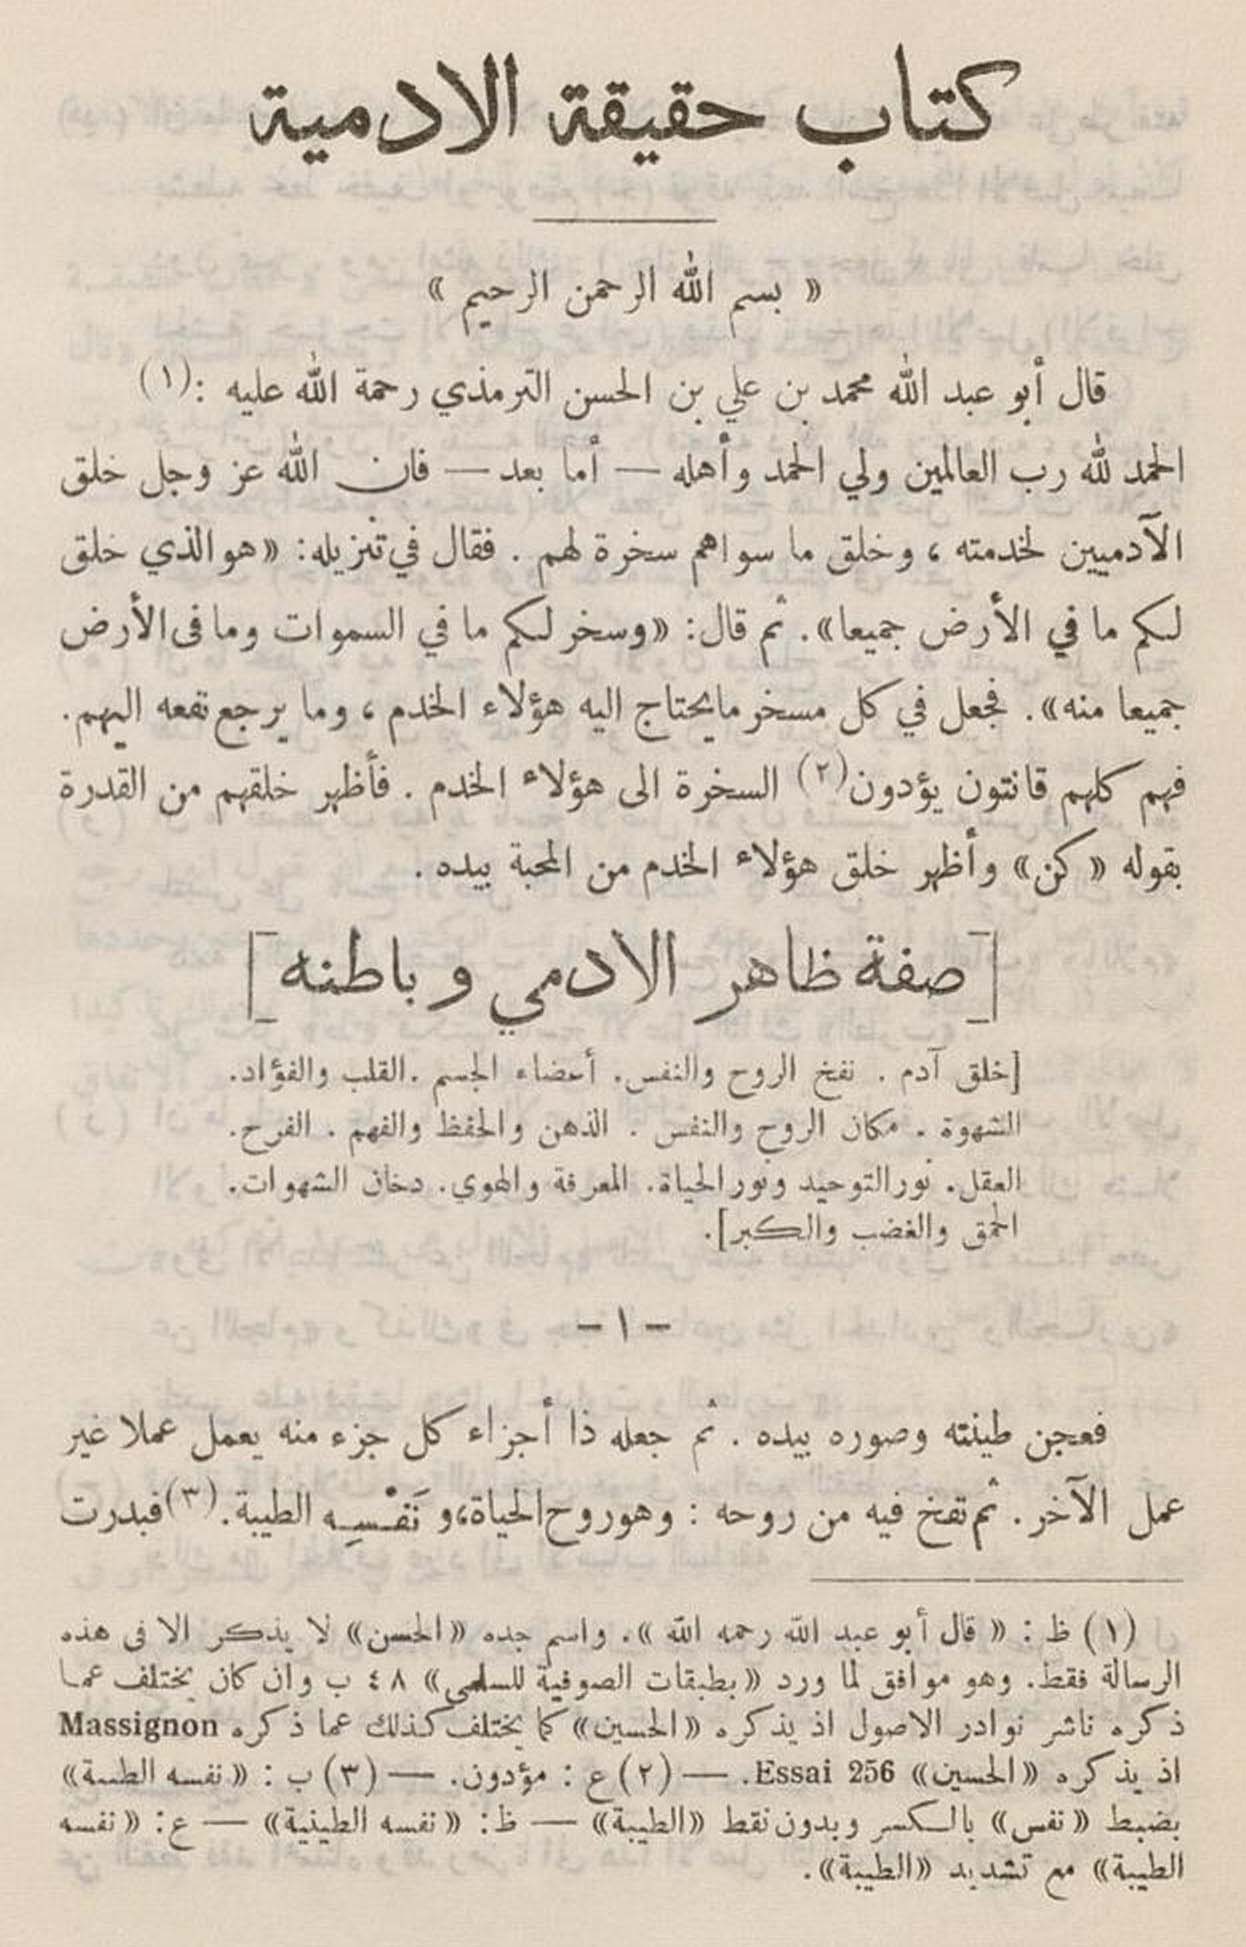 كتاب حقيقة الادمية
« بسم الله الرحمن الرحيم »
قال أبو عبد الله محمد بن علي بن الحسن الترمذي رحمة الله عليه :(١)
الحمد لله رب العالمين ولي الحمد وأهله — أما بعد — فان الله عز وجل خلق
الآدميين لخدمته ، وخلق ما سواهم سخرة لهم . فقال في تنزيله: «هو الذي خلق
لكم ما في الأرض جميعا». ثم قال: «وسخر لكم ما في السموات وما فى الأرض
جميعا منه». فجعل في كل مسخر ما يحتاج اليه هؤلاء الخدم ، وما يرجع نفعه اليهم.
فهم كلهم قانتون يؤدون(٢) السخرة الى هؤلاء الخدم . فأظهر خلقهم من القدرة
بقوله « كن» وأظهر خلق هؤلاء الخدم من المحبة بيده .
[صفة ظاهر الادمي وباطنه]
[خلق آدم . نفخ الروح والنفس. أعضاء الجسم .القلب والفؤاد.
الشهوة . مكان الروح والنفس . الذهن والحفظ والفهم . الفرح.
العقل. نور التوحيد ونور الحياة. المعرفة والهوي. دخان الشهوات.
الحمق والغضب والكبر].
- ١ -
فعجن طينته وصوره بيده . ثم جعله ذا أجزاء كل جزء منه يعمل عملا غير
عمل الآخر . ثم نفخ فيه من روحه : وهو روح الحياة، ونَفْسِه الطيبة.(٣) فبدرت
(١) ظ : « قال أبو عبد الله رحمه الله ». واسم جده «الحسن» لا يذكر الا فى هذه
الرسالة فقط. وهو موافق لما ورد «بطبقات الصوفية للسلمي» ٤٨ ب وان كان يختلف عما
ذكره ناشر نوادر الاصول اذ يذكره «الحسين» كما يختلف كذلك عما ذكره Massignon
اذ يذكره «الحسين» Essai 256. — (٢) ع : مؤدون. — (٣) ب : «نفسه الطيبة»
بضبط «نفس» بالكسر وبدون نقط «الطيبة» — ظ: «نفسه الطينية» — ع: «نفسه
الطيبة» مع تشديد «الطيبة».